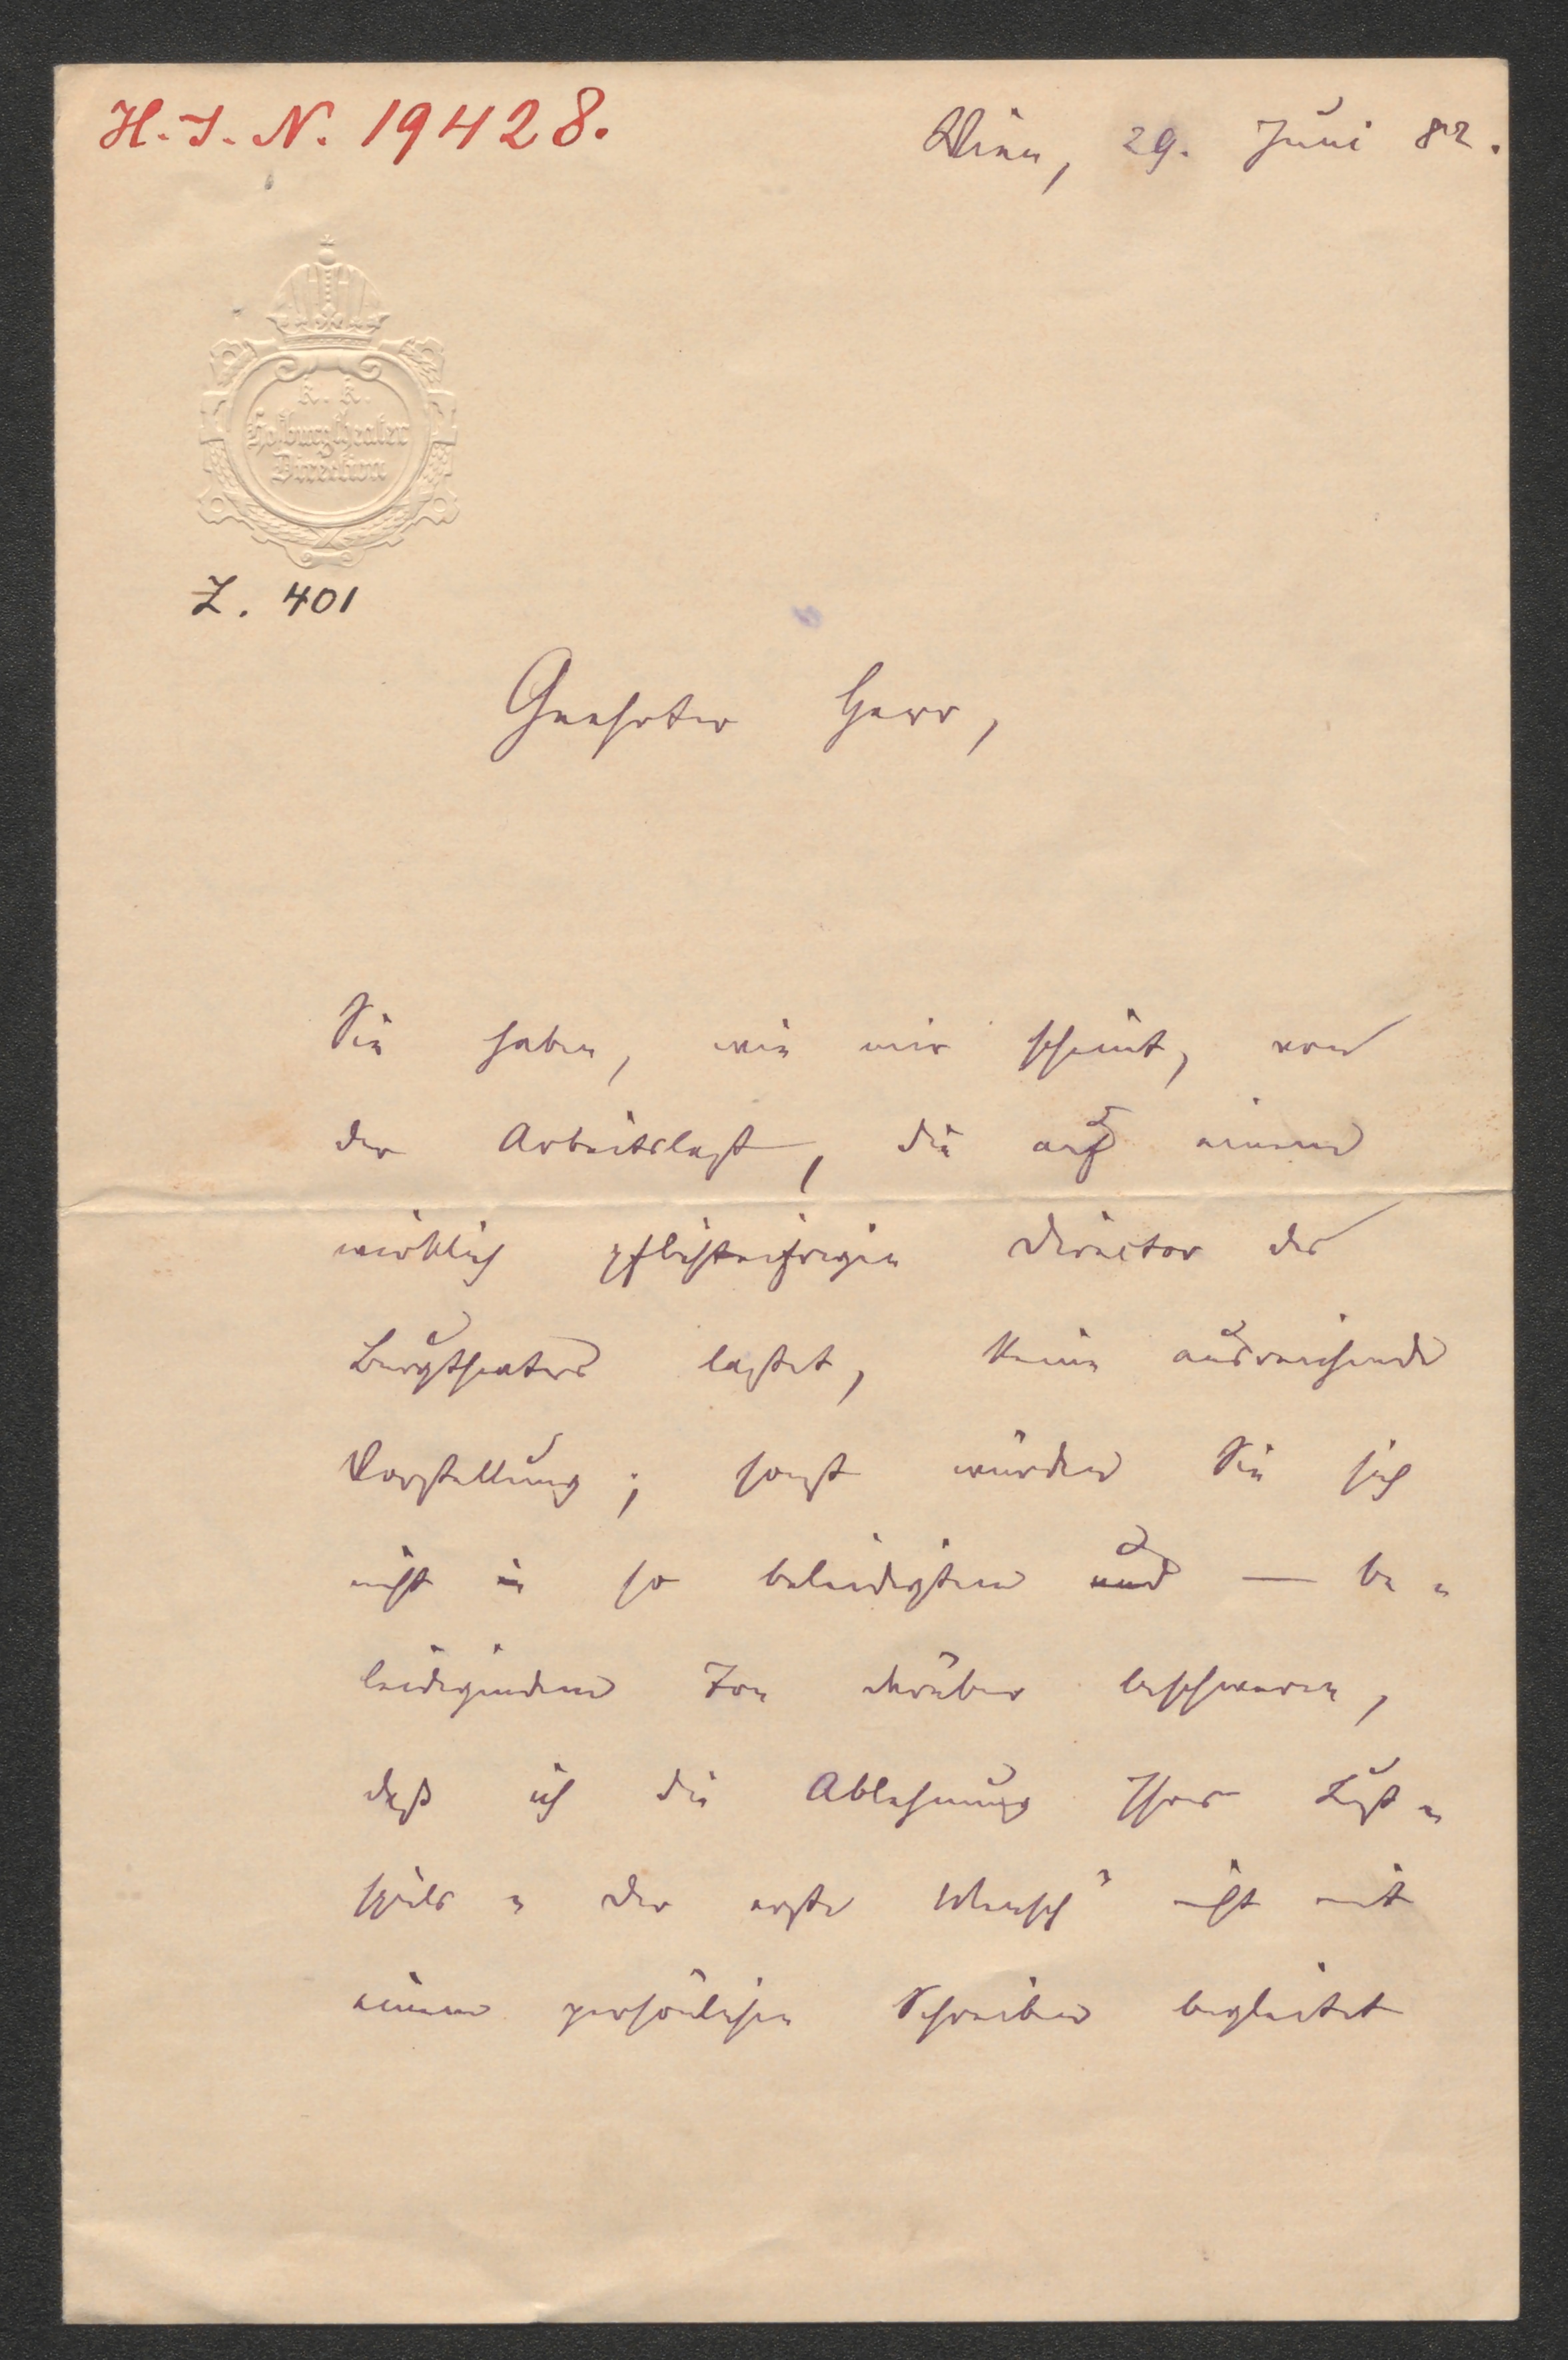 H. I. N. 19428.
Wien, 29. Juni 82.
K. K.
Hofburgtheater
Direction
Z. 401
Geehrter Herr,
Sie haben, wie mir scheint, von
der Arbeitslast, die auf einem
wirklich pflichteifrigen Director des
Burgtheaters lastet, keine ausreichende
Vorstellung; sonst würden Sie sich
nicht in so beleidigtem und — be-
leidigendem Ton darüber beschweren,
daß ich die Ablehnung Ihres Lust-
spiels "der erste Mensch" nicht mit
einem persönlichen Schreiben begleitet